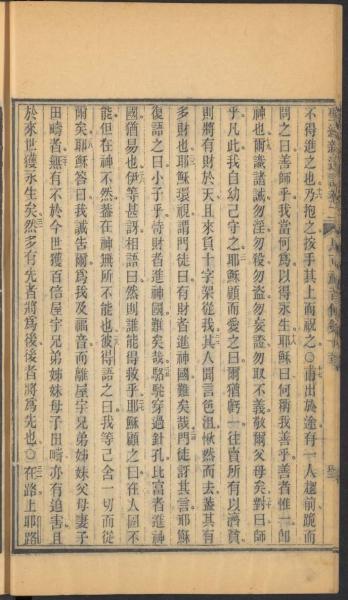 不得進之也乃抱之按手其上而祝之○甫出於途有一人趨前跪而
問之曰善師乎我當何爲以得永生耶穌曰何稱我善乎善者惟一卽
神也爾識諸誡勿淫勿殺勿盜勿妄證勿取不義敬爾父母矣對曰師
乎凡此我自幼已守之耶穌顧而愛之曰爾猶虧一往賣所有以濟貧
則將有財於天且來負十字架從我其人聞言色沮愀然而去蓋其有
多財也耶穌環視謂門徒曰有財者進神國難矣哉門徒訝其言耶穌
復語之曰小子乎恃財者進神國難矣哉駱駝穿過針孔比富者進神
國猶易也伊等甚訝相語曰然則誰能得救乎耶穌顧之曰在人固不
能但在神不然蓋在神無所不能也彼得語之曰我等已舍一切而從
爾矣耶穌答曰我誠告爾爲我及福音而離屋宇兄弟姊妹父母妻子
田疇者無有不於今世獲百倍屋宇兄弟姊妹母子田疇亦有迫害且
於來世獲永生矣然多有先者將爲後後者將爲先也○在路上耶路